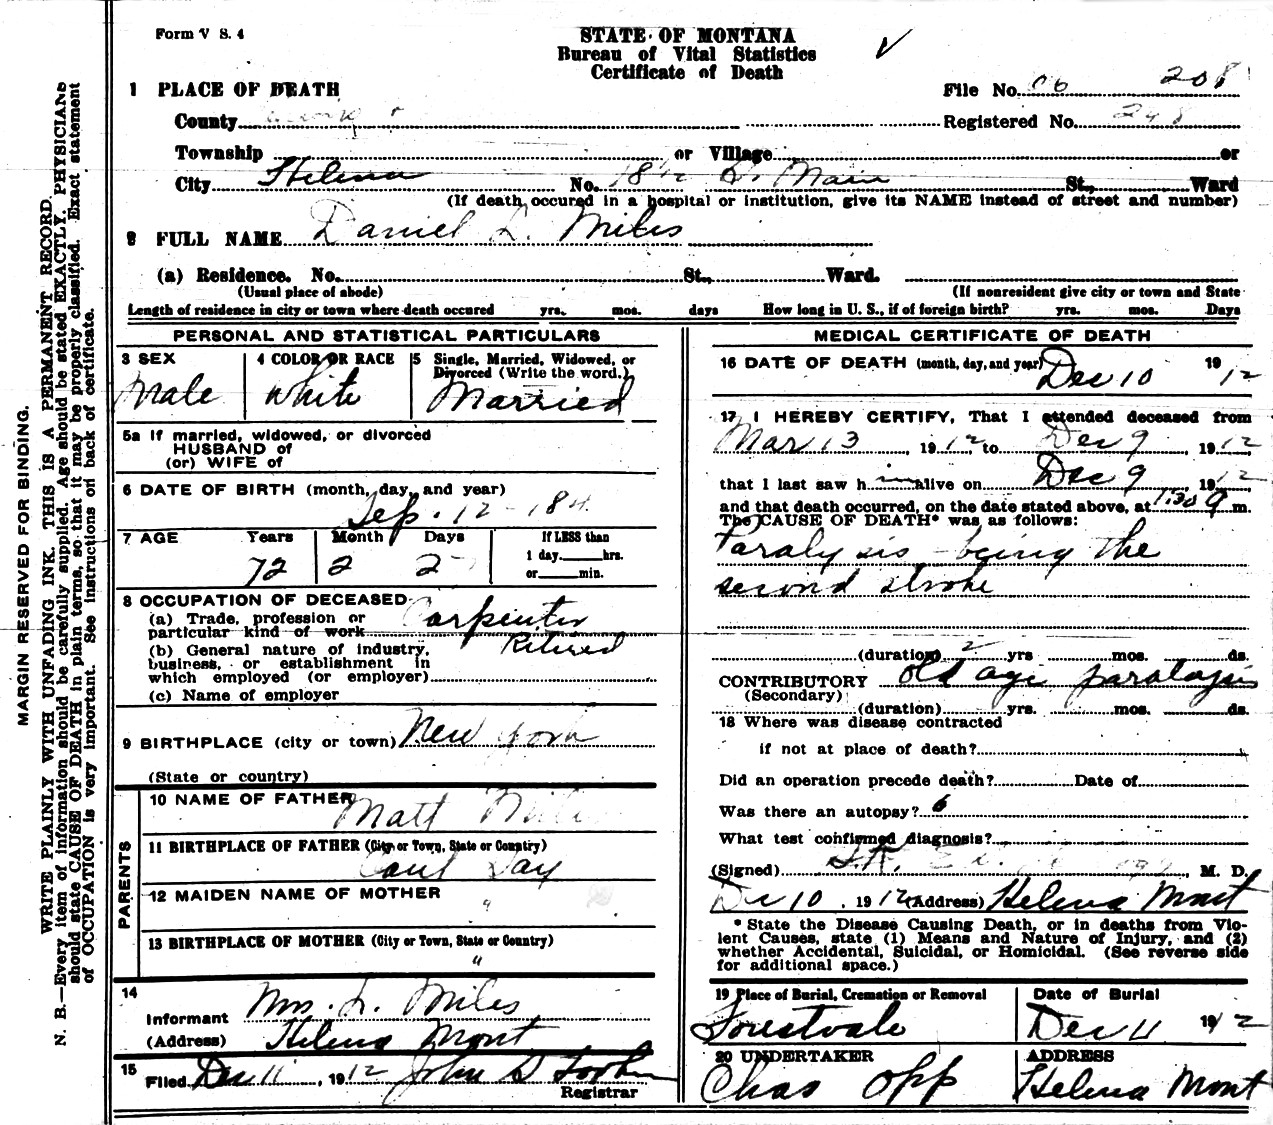 Form V S. 4
STATE OF MONTANA
Bureau of Vital Statistics
Certificate of Death
1 PLACE OF DEATH
File No. 208
County
Registered No. 248
Township or Village or
City Helena No. 18 1/2 S. Main St., Ward
(If death occured in a hospital or institution, give its NAME instead of street and number)
2 FULL NAME Daniel L. Miles
(a) Residence. No. St., Ward.
(Usual place of abode) (If nonresident give city or town and State
Length of residence in city or town where death occured yrs. mos. days How long in U. S., if of foreign birth? yrs. mos. Days
PERSONAL AND STATISTICAL PARTICULARS
3 SEX
Male
4 COLOR OR RACE
White
5 Single, Married, Widowed, or
Divorced (Write the word.)
Married
5a If married, widowed, or divorced
HUSBAND of
(or) WIFE of
6 DATE OF BIRTH (month, day, and year)
Sep. 12 - 184
7 AGE Years Month Days If LESS than
1 day, hrs.
or min.
72 2 2
8 OCCUPATION OF DECEASED
(a) Trade, profession or
particular kind of work Carpenter
(b) General nature of industry, Retired
business, or establishment in
which employed (or employer)
(c) Name of employer
9 BIRTHPLACE (city or town) New York
(State or country)
PARENTS
10 NAME OF FATHER Matt Miles
11 BIRTHPLACE OF FATHER (City or Town, State or Country)
Cant Say
12 MAIDEN NAME OF MOTHER
"
13 BIRTHPLACE OF MOTHER (City or Town, State or Country)
"
14
Informant Mrs. L. Miles
(Address) Helena Mont
15
Filed Dec 11, 1912 John S
Registrar
MEDICAL CERTIFICATE OF DEATH
16 DATE OF DEATH (month, day, and year) Dec 10 1912
17 I HEREBY CERTIFY, That I attended deceased from
Mar 13, 1912, to Dec 9, 1912
that I last saw him alive on Dec 9, 1912
and that death occurred, on the date stated above, at 1:30 a m.
The CAUSE OF DEATH* was as follows:
Paralysis - being the
second stroke
(duration) 2 yrs mos. ds.
CONTRIBUTORY old age paralysis
(Secondary)
(duration) yrs. mos. ds.
18 Where was disease contracted
if not at place of death?
Did an operation precede death? Date of
Was there an autopsy?
What test confirmed diagnosis?
(Signed) M. D.
Dec 10, 1912 (Address) Helena Mont
* State the Disease Causing Death, or in deaths from Vio-
lent Causes, state (1) Means and Nature of Injury, and (2)
whether Accidental, Suicidal, or Homicidal. (See reverse side
for additional space.)
19 Place of Burial, Cremation or Removal
Forestvale
Date of Burial
Dec 11 1912
20 UNDERTAKER
Chas Opp
ADDRESS
Helena Mont
MARGIN RESERVED FOR BINDING.
WRITE PLAINLY WITH UNFADING INK. THIS IS A PERMANENT RECORD.
N. B.—Every item of information should be carefully supplied. Age should be stated EXACTLY. PHYSICIANS
should state CAUSE OF DEATH in plain terms, so that it may be properly classified. Exact statement
of OCCUPATION is very important. See instructions on back of certificate.